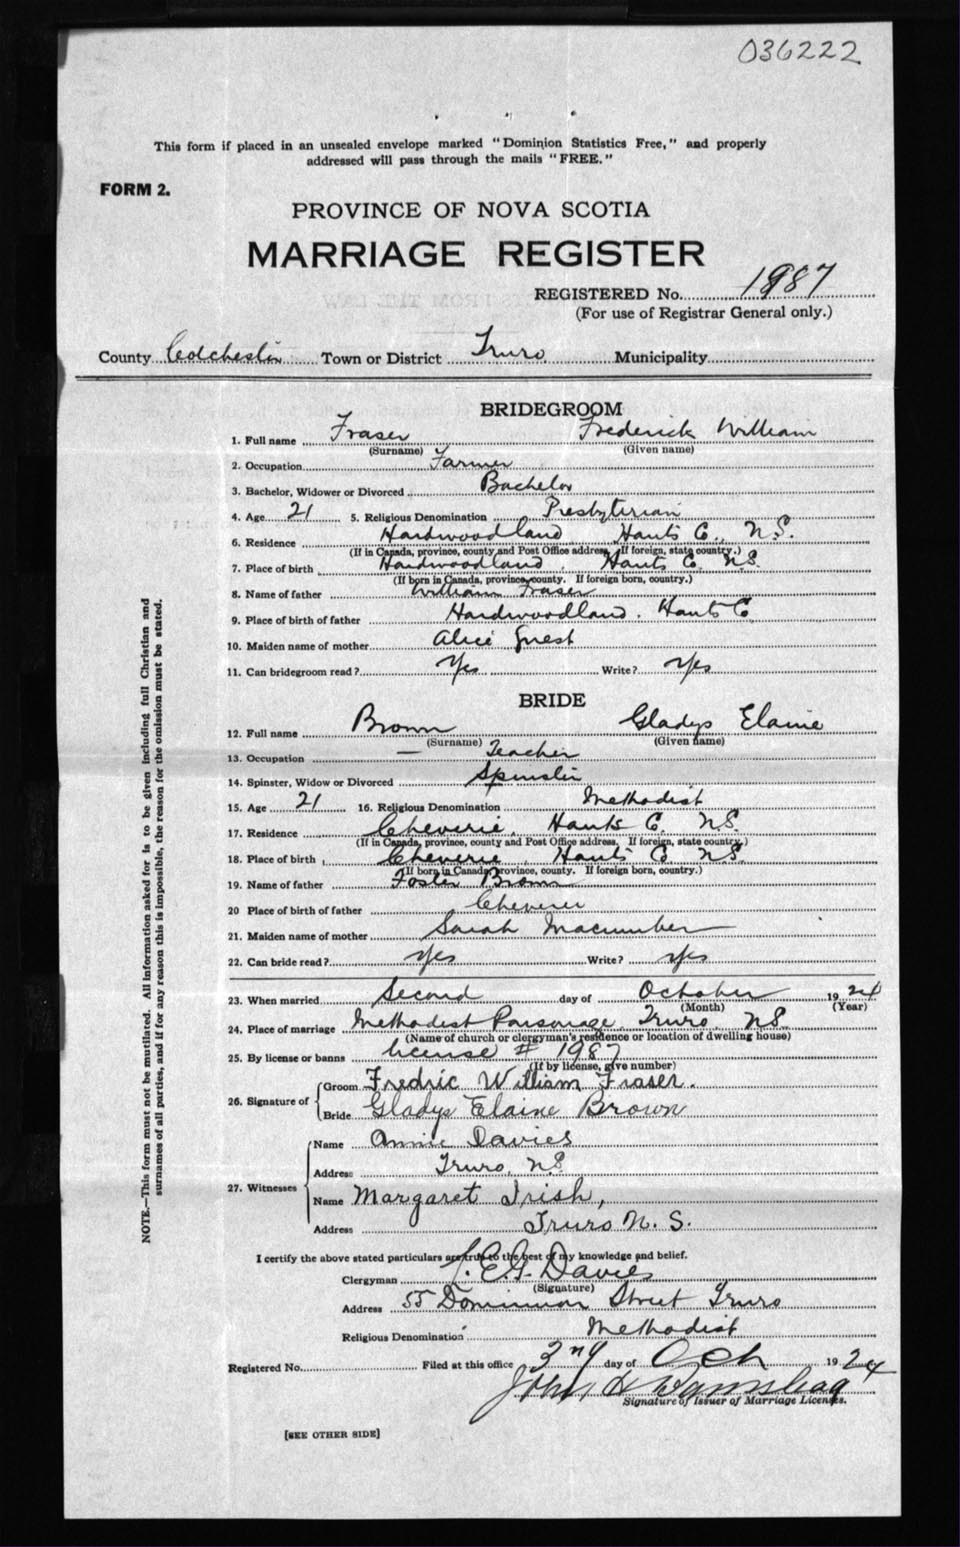 036222
This form if placed in an unsealed envelope marked "Dominion Statistics Free," and properly
addressed will pass through the mails "FREE."
FORM 2.
PROVINCE OF NOVA SCOTIA
MARRIAGE REGISTER
REGISTERED No. 1987
(For use of Registrar General only.)
County Colchester Town or District Truro Municipality
BRIDEGROOM
1. Full name Fraser Frederick William
(Surname) (Given name)
2. Occupation Farmer
3. Bachelor, Widower or Divorced Bachelor
4. Age 21 5. Religious Denomination Presbyterian
6. Residence Hardwoodland Hants Co., N.S.
(If in Canada, province, county and Post Office address. If foreign, state country.)
7. Place of birth Hardwoodland, Hants Co N.S.
(If born in Canada, province, county. If foreign born, country.)
8. Name of father William Fraser
9. Place of birth of father Hardwoodland. Hants Co
10. Maiden name of mother Alice Guest
11. Can bridegroom read? Yes Write? Yes
BRIDE
12. Full name Brown Gladys Elaine
(Surname) (Given name)
13. Occupation — Teacher
14. Spinster, Widow or Divorced Spinster
15. Age 21 16. Religious Denomination Methodist
17. Residence Cheverie, Hants Co. N.S.
(If in Canada, province, county and Post Office address. If foreign, state country.)
18. Place of birth Cheverie, Hants Co N.S.
(If born in Canada, province, county. If foreign born, country.)
19. Name of father Foster Brown
20 Place of birth of father Cheverie
21. Maiden name of mother Sarah Macumber
22. Can bride read? Yes Write? Yes
23. When married Second day of October 1924
(Month) (Year)
24. Place of marriage Methodist Parsonage, Truro, N.S.
(Name of church or clergyman's residence or location of dwelling house)
25. By license or banns license # 1987
(If by license, give number)
26. Signature of Groom Fredric William Fraser.
Bride Gladys Elaine Brown
27. Witnesses Name Annie Davies
Address Truro, N.S.
Name Margaret Irish,
Address Truro N. S.
I certify the above stated particulars are true to the best of my knowledge and belief.
Clergyman J. E. G. Davies
(Signature)
Address 55 Dominion Street Truro
Religious Denomination Methodist
Registered No. Filed at this office 3rd day of Oct 1924
John H
Signature of Issuer of Marriage Licenses.
[SEE OTHER SIDE]
NOTE.—This form must not be mutilated. All information asked for is to be given including full Christian and
surnames of all parties, and if for any reason this is impossible, the reason for the omission must be stated.